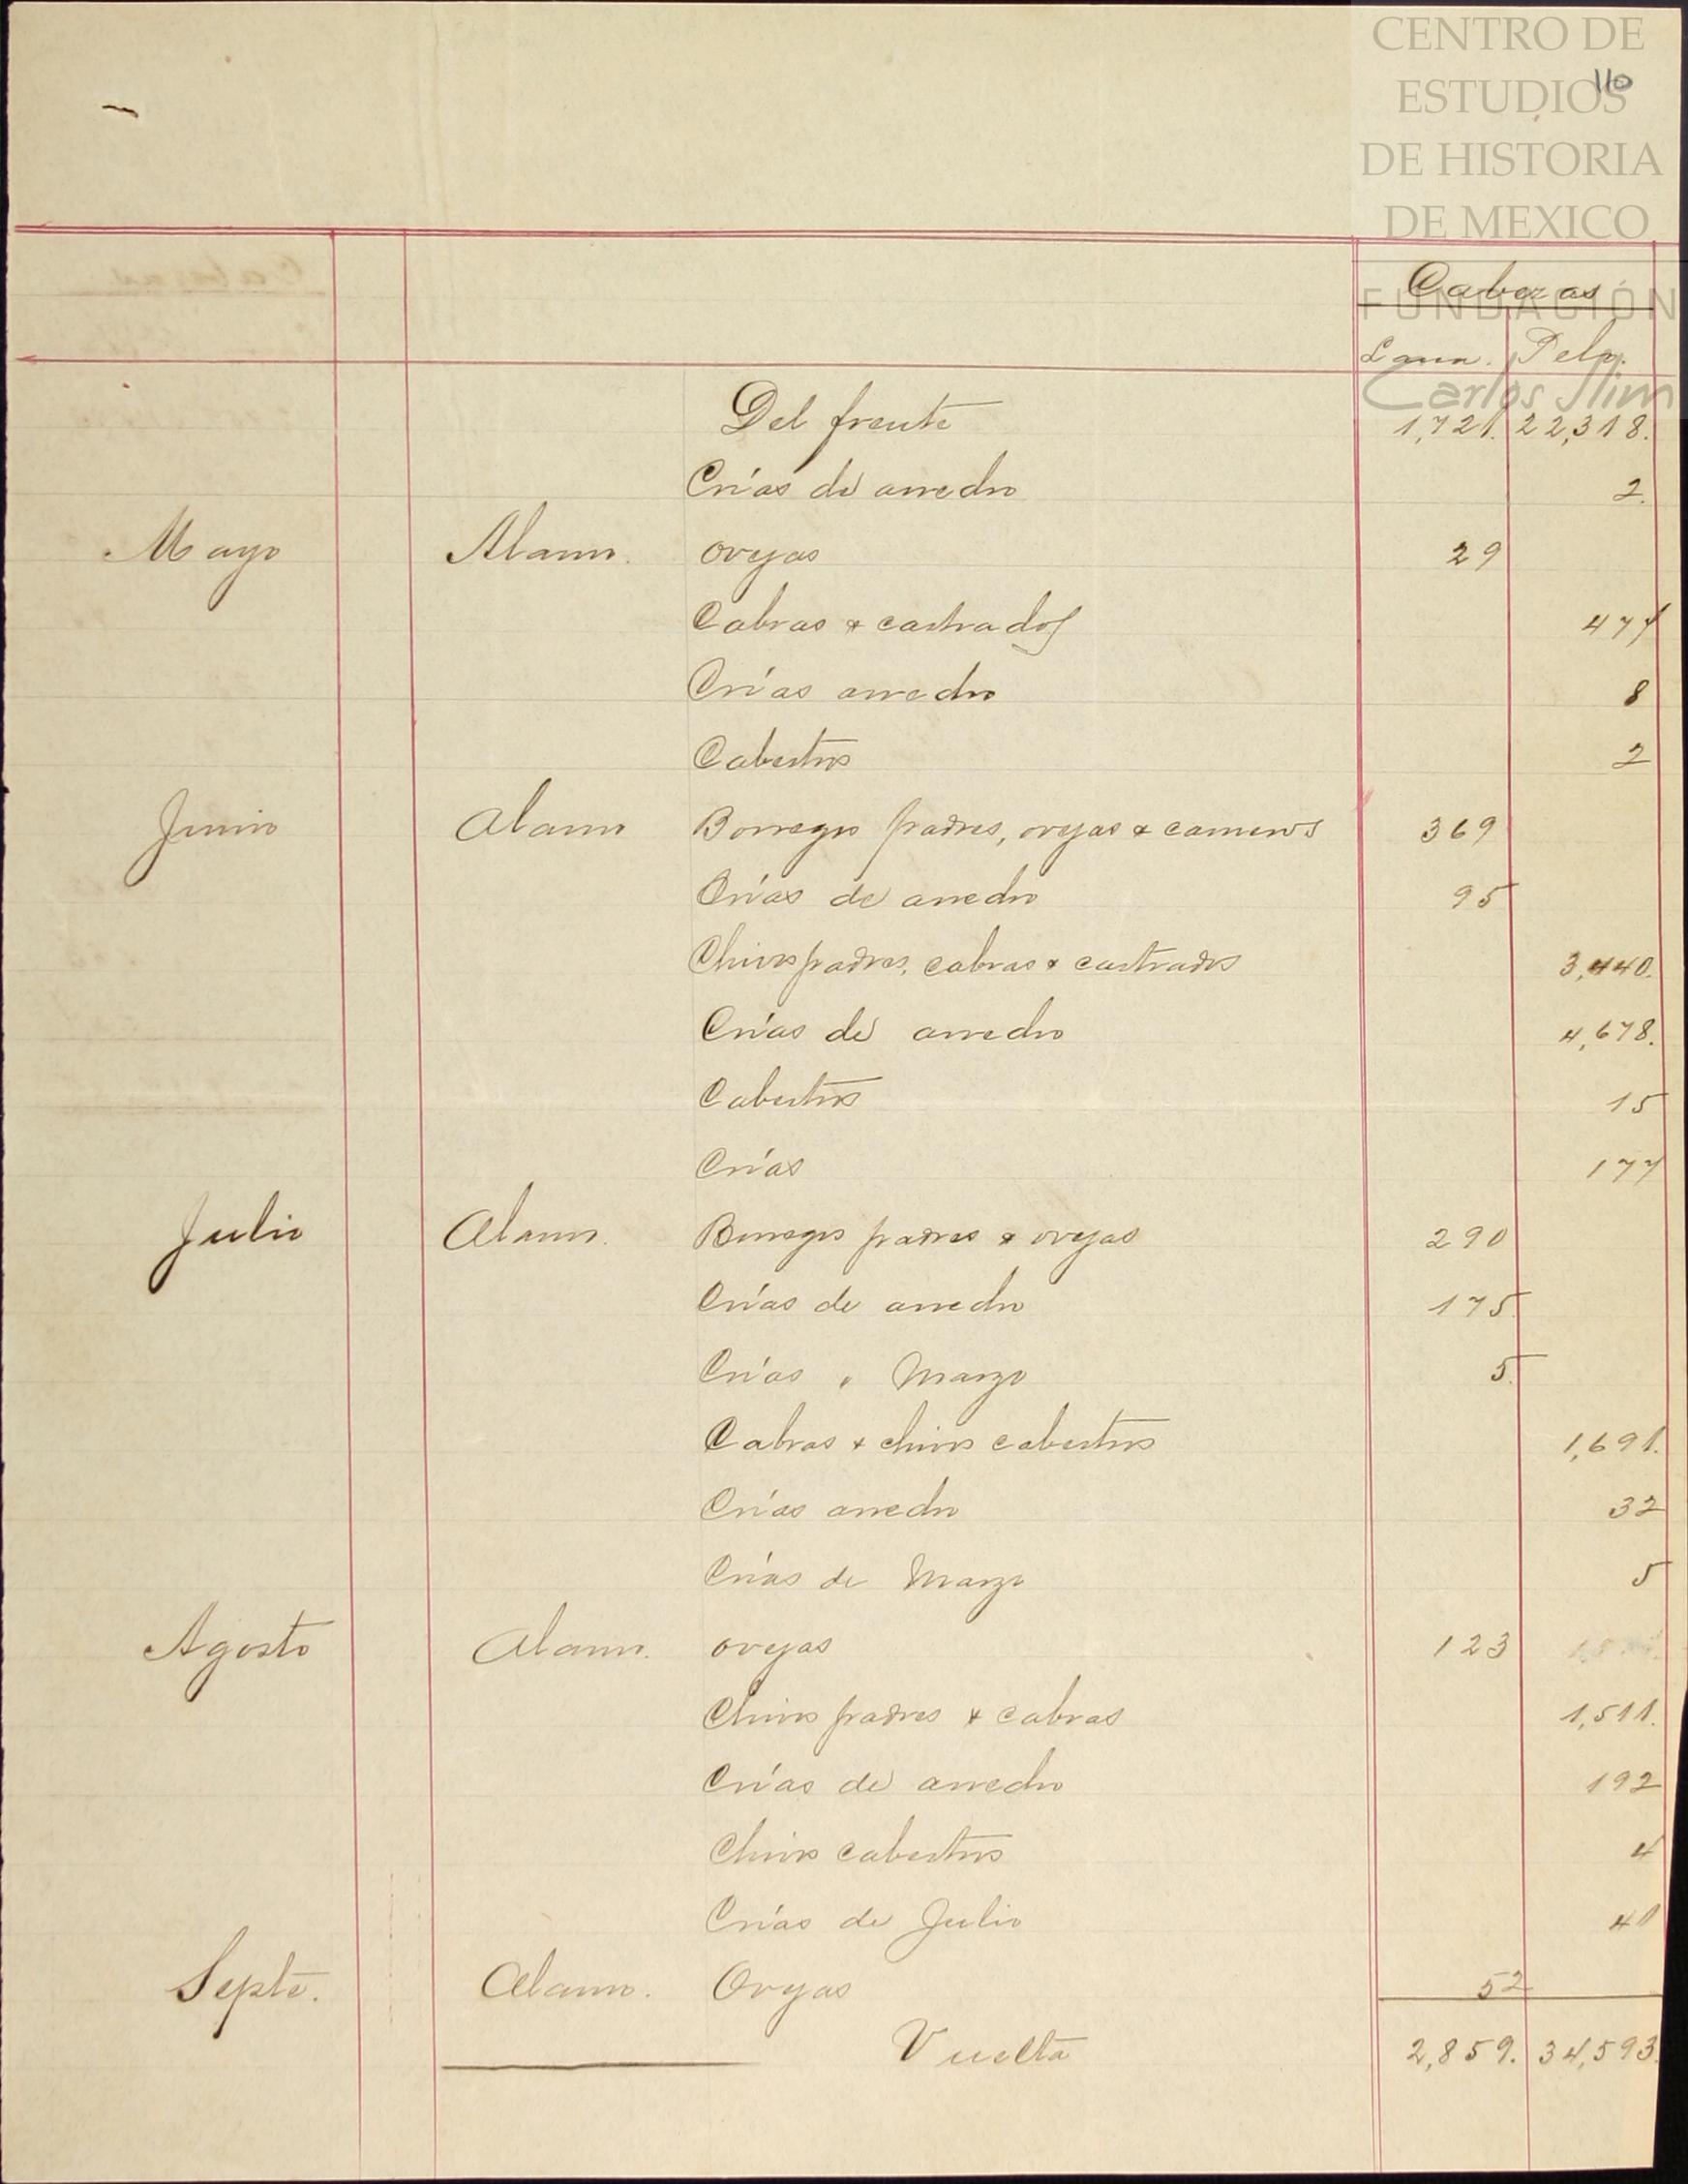 CENTRO DE
110
ESTUDIOS
DE HISTORIA
DE MEXICO
Cabezas
FUNDACIÓN
Lana. Pelo.
Carlos Slim
Del frente 1,721. 22,318.
Crías de arredro 2.
Mayo Alamo. ovejas 29
Cabras & castrados 477
Crías arredro 8
Cabestros 2
Junio Alamo Borregos padres, ovejas & carneros 369
Crías de arredro 95
Chivos padres, cabras & castrados 3,440.
Crías de arredro 4,678.
Cabestros 15
Crías 177
Julio Alamo. Borregos padres & ovejas 290
Crías de arredro 175.
Crías " Marzo 5.
Cabras & chivos cabestros 1,691.
Crías arredro 32
Crías de Marzo 5
Agosto Alamo. ovejas 123
Chivos padres & cabras 1,511.
Crías de arredro 192
Chivos cabestros 4
Crías de Julio 41
Septe. Alamo. Ovejas 52
Vuelta 2,859. 34,593.